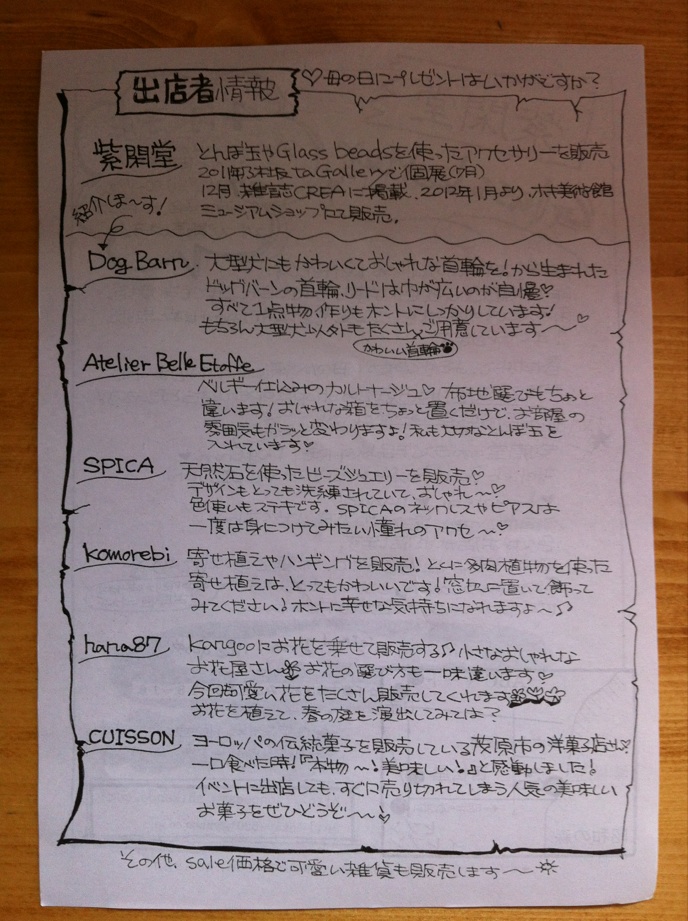 出店者情報
♡母の日にプレゼントはいかがですか?
紫閑堂
とんぼ玉やGlass beadsを使ったアクセサリーを販売
taGalleryで個展(7月)
12月、雑誌CREAに掲載、2012年1月より、ホキ美術館
ミュージアムショップにて販売。
紹介は〜す!
Dog Barn
大型犬にもかわいくておしゃれな首輪を!から生まれた
ドッグバーンの首輪、リードは巾が広いのが自慢♡
すべて1点物作りもホントにしっかりしています!
もちろん大型犬以外もたくさんご用意しています〜♡
かわいい首輪
Atelier Belle Etoffe
ベルギー仕込みのカルトナージュ♡ 布地選びもちょっと
違います!おしゃれな箱をちょっと置くだけで、お部屋の
雰囲気もガラッと変わりますよ!私も大切なとんぼ玉を
入れています♡
SPICA
天然石を使ったビーズジュエリーを販売♡
デザインもとっても洗練されていて、おしゃれ〜!
色使いもステキです。SPICAのネックレスやピアスは
一度は身につけてみたい憧れのアクセ〜♡
komorebi
寄せ植えやハンギングを販売!とくに多肉植物を使った
寄せ植えは、とってもかわいいです!窓辺に置いて飾って
みてください!ホントに幸せな気持ちになれますよ〜♪
hana87
kangooにお花を乗せて販売する♪小さなおしゃれな
お花屋さん お花の選び方も一味違います♡
今回も可愛い花をたくさん販売してくれます
お花を植えて、春の庭を演出してみては?
CUISSON
ヨーロッパの伝統菓子を販売している茂原市の洋菓子店♡
一口食べた時!『本物〜!美味しい!』と感動しました!
イベントに出店しても、すぐに売り切れてしまう人気の美味しい
お菓子をぜひどうぞ〜〜!
その他、sale価格で可愛い雑貨も販売します〜☀